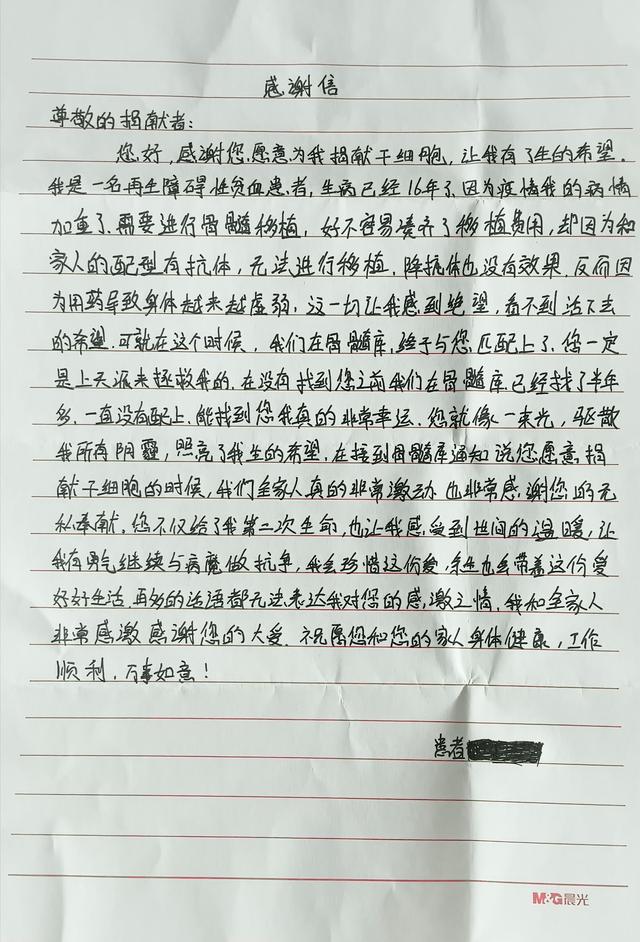 感谢信
尊敬的捐献者：
您好，感谢您愿意为我捐献干细胞，让我有了生的希望。
我是一名再生障碍性贫血患者，生病已经16年了，因为疫情我的病情
加重了，需要进行骨髓移植，好不容易凑齐了移植费用，却因为和
家人的配型有抗体，无法进行移植，降抗体也没有效果，反而因
为用药导致身体越来越虚弱，这一切让我感到绝望，看不到活下去
的希望，可就在这个时候，我们在骨髓库，终于与您匹配上了，您一定
是上天派来拯救我的，在没有找到您之前我们在骨髓库已经找了半年
多，一直没有配上，能找到您我真的非常幸运，您就像一束光，驱散
我所有阴霾，照亮了我生的希望，在接到骨髓库通知说您愿意捐
献干细胞的时候，我们全家人真的非常激动，也非常感谢您的无
私奉献，您不仅给了我第二次生命，也让我感受到世间的温暖，让
我有勇气继续与病魔做抗争，我会珍惜这份爱，余生也会带着这份爱
好好生活，再多的话语都无法表达我对您的感激之情，我和全家人
非常感激感谢您的大爱，祝愿您和您的家人身体健康，工作
顺利，万事如意！
患者
M&G晨光